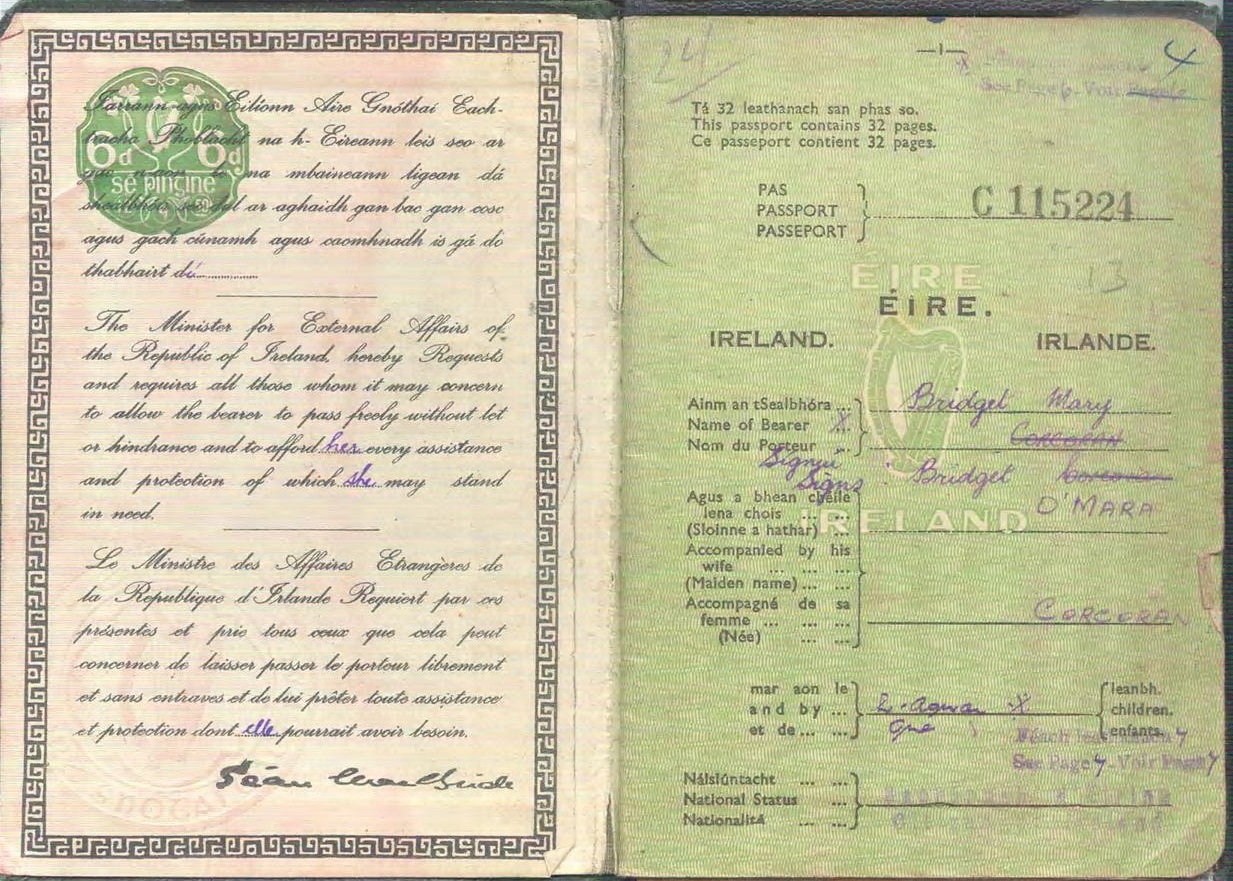 Iarrann agus Éilíonn Aire Gnóthaí Each-
tracha Phoblacht na h-Éireann leis seo ar
gach n-aon le na mbaineann ligean dá
shealbhóir seo dul ar aghaidh gan bac gan cosc
agus gach cúnamh agus caomhnadh is gá do
thabhairt dí
6d 6d
sé pingine
The Minister for External Affairs of
the Republic of Ireland, hereby Requests
and requires all those whom it may concern
to allow the bearer to pass freely without let
or hindrance and to afford her every assistance
and protection of which she may stand
in need.
Le Ministre des Affaires Etrangères de
la Republique d'Irlande Requiert par ces
présentes et prie tous ceux que cela peut
concerner de laisser passer le porteur librement
et sans entraves et de lui prêter toute assistance
et protection dont elle pourrait avoir besoin.
Seán MacBride
24
— 1 —
4
See Page 6. Voir
Tá 32 leathanach san phas so.
This passport contains 32 pages.
Ce passeport contient 32 pages.
PAS
PASSPORT
PASSEPORT
C 115224
13
ÉIRE
ÉIRE.
IRELAND. IRLANDE.
Ainm an tSealbhóra ...
Name of Bearer X ...
Nom du Porteur
Bridget Mary
CORCORAN
Signs : Bridget Corcoran
O'MARA
Agus a bhean chéile
lena chois ... ...
(Sloinne a hathar) ...
IRELAND
Accompanied by his
wife ... ... ...
(Maiden name) ... ...
Accompagné de sa
femme ... ... ...
(Née) ...
CORCORAN
mar aon le ...
and by ...
et de ... ...
X
One
leanbh.
children.
enfants.
Féach leathanach 7
See Page 7. Voir Page 7
Náisiúntacht ... ...
National Status ... ...
Nationalité ... ...